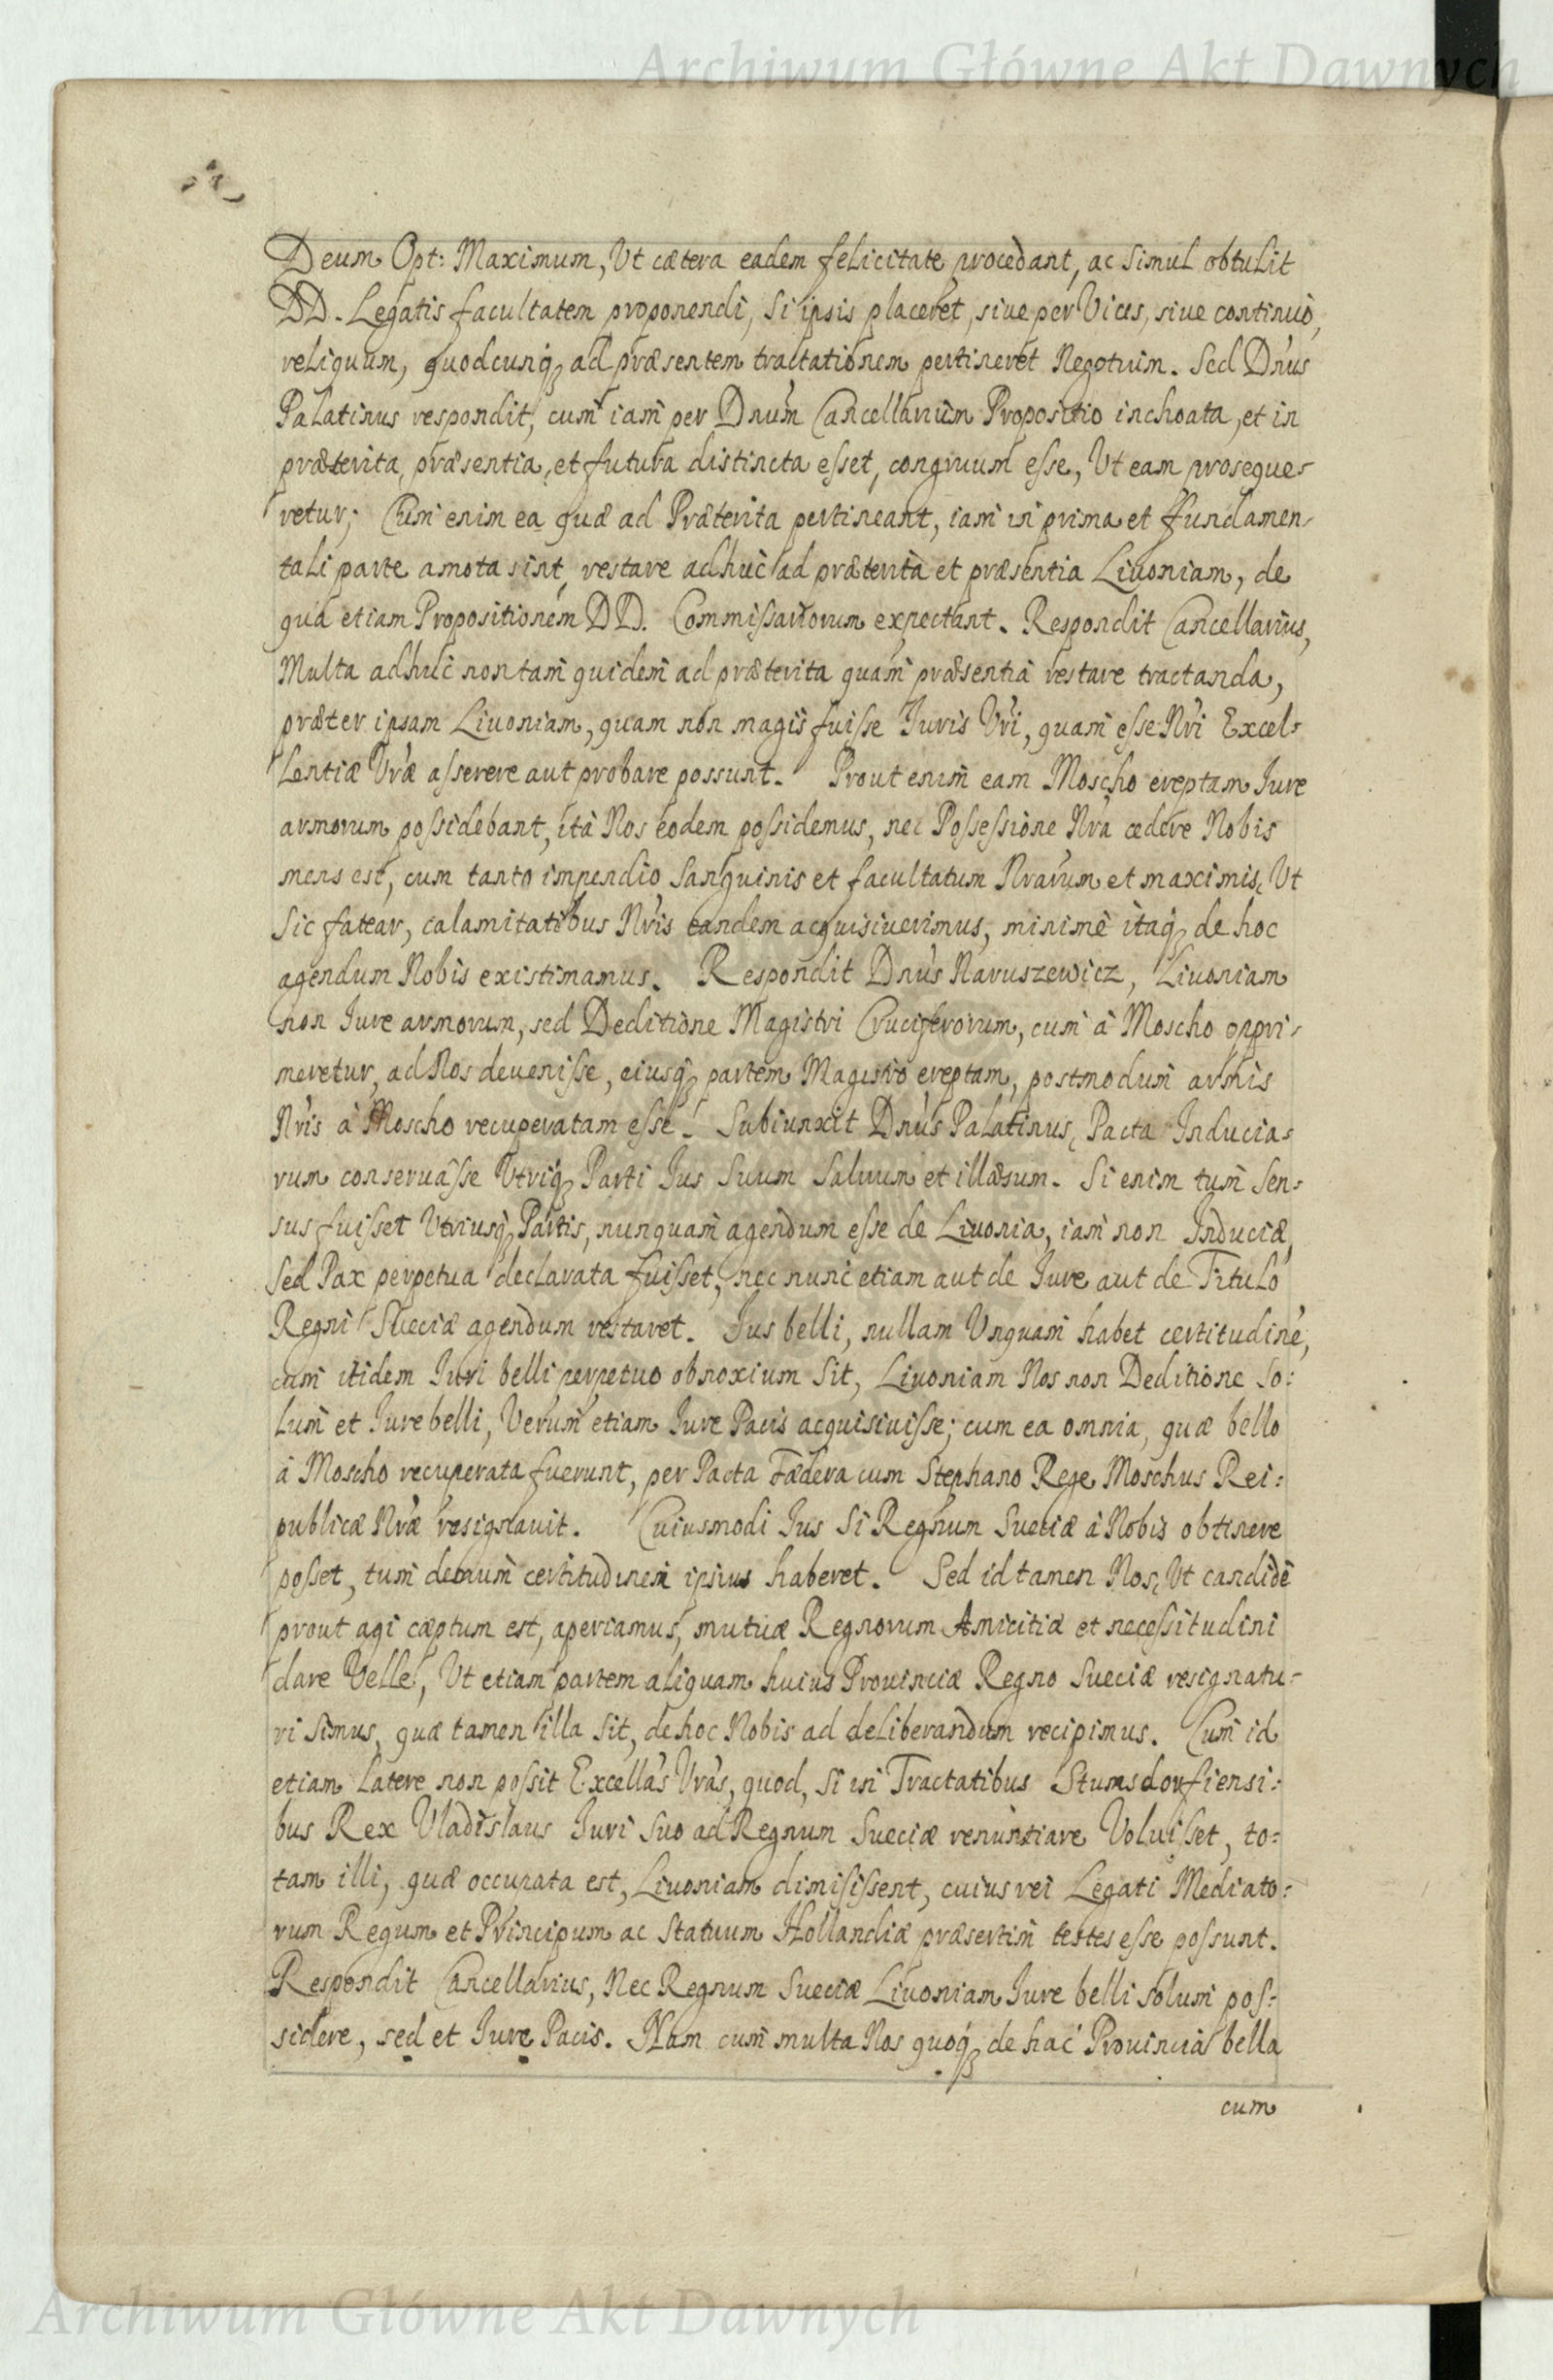 Archiwum Główne Akt Dawnych
Deum Opt: Maximum, Ut cætera eadem felicitate procedant, ac simul obtulit
DD. Legatis facultatem proponendi, si ipsis placeret, siue per Vices, siue continuò,
reliquum, quodcunq; ad præsentem tractationem pertineret Negotium. Sed Dn̄us
Palatinus respondit, cum iam per Dnum̄ Cancellarium Propositio inchoata, et in
præterita, præsentia, et futura distincta esset, congruum esse, Ut eam proseque-
retur; Cum enim ea quæ ad Præterita pertineant, iam in prima et fundamen-
tali parte amota sint, restare adhuc ad præterita et præsentia Liuoniam, de
qua etiam Propositionem DD. Commissariorum expectant. Respondit Cancellarius,
Multa adhuc non tam quidem ad præterita quam præsentia restare tractanda,
præter ipsam Liuoniam, quam non magis fuisse Iuris Vr̄i, quam esse Nr̄i Excel-
lentiæ Vræ asserere aut probare possunt. Prout enim eam Moscho ereptam Iure
armorum possidebant, ità Nos eodem possidemus, nec Possessione Nrā cedere Nobis
mens est, cum tanto impendio Sanguinis et facultatum Nrarum et maximis, Ut
sic fatear, calamitatibus Nr̄is eandem acquisiuerimus, minimè itaq; de hoc
agendum Nobis existimamus. Respondit Dn̄us Naruszewicz, Liuoniam
non Iure armorum, sed Deditione Magistri Cruciferorum, cum à Moscho oppri-
meretur, ad Nos deuenisse, eiusq; partem Magistro ereptam, postmodum armis
Nr̄is à Moscho recuperatam esse. Subiunxit Dn̄us Palatinus, Pacta Inducia-
rum conseruâsse Utriq; Parti Jus Suum Saluum et illæsum. Si enim tum sen-
sus fuisset Utriusq; Partis, nunquam agendum esse de Liuonia, iam non Induciæ,
sed Pax perpetua declarata fuisset, nec nunc etiam aut de Iure aut de Titulo
Regni Sueciæ agendum restaret. Jus belli, nullam Unquam habet certitudinē,
cum itidem Iuri belli perpetuo obnoxium sit, Liuoniam Nos non Deditione so-
lum et Iure belli, Verum etiam Iure Pacis acquisiuisse; cum ea omnia, quæ bello
à Moscho recuperata fuerunt, per Pacta Fœdera cum Stephano Rege Moschus Rei-
publicæ Nræ resignauit. Cuiusmodi Jus si Regnum Sueciæ à Nobis obtinere
posset, tum demum certitudinem ipsius haberet. Sed id tamen Nos, Ut candidè
prout agi cæptum est, aperiamus, mutuæ Regnorum Amicitiæ et necessitudini
dare Velle, Ut etiam partem aliquam huius Prouinciæ Regno Sueciæ resignatu-
ri simus, quæ tamen illa sit, de hoc Nobis ad deliberandum recipimus. Cum id
etiam latere non possit Excellās Vrās, quod, si in Tractatibus Stumsdorfiensi-
bus Rex Vladislaus Iuri Suo ad Regnum Sueciæ renuntiare Voluisset, to-
tam illi, quæ occupata est, Liuoniam dimisissent, cuius rei Legati Mediato-
rum Regum et Principum ac Statuum Hollandiæ præsertim testes esse possunt.
Respondit Cancellarius, Nec Regnum Sueciæ Liuoniam Iure belli solum pos-
sidere, sed et Iure Pacis. Nam cum multa Nos quoq; de hac Prouincia bella
cum
Archiwum Główne Akt Dawnych